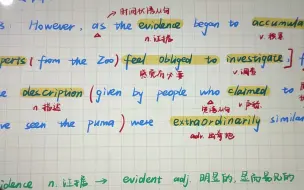 时间状语从句
: However, as the evidence began to accumula
n. 证据
v. 积累
perts (from the Zoo) feel obliged to investigate,]
感觉有必要
v. 调查
e description (given by people who claimed to
n. 描述
定语从句
v. 声称
ve seen the puma) were extraordinarily simila
adv. 出奇地
idence n. 证据 → evident adj. 明显的, 显而易见的